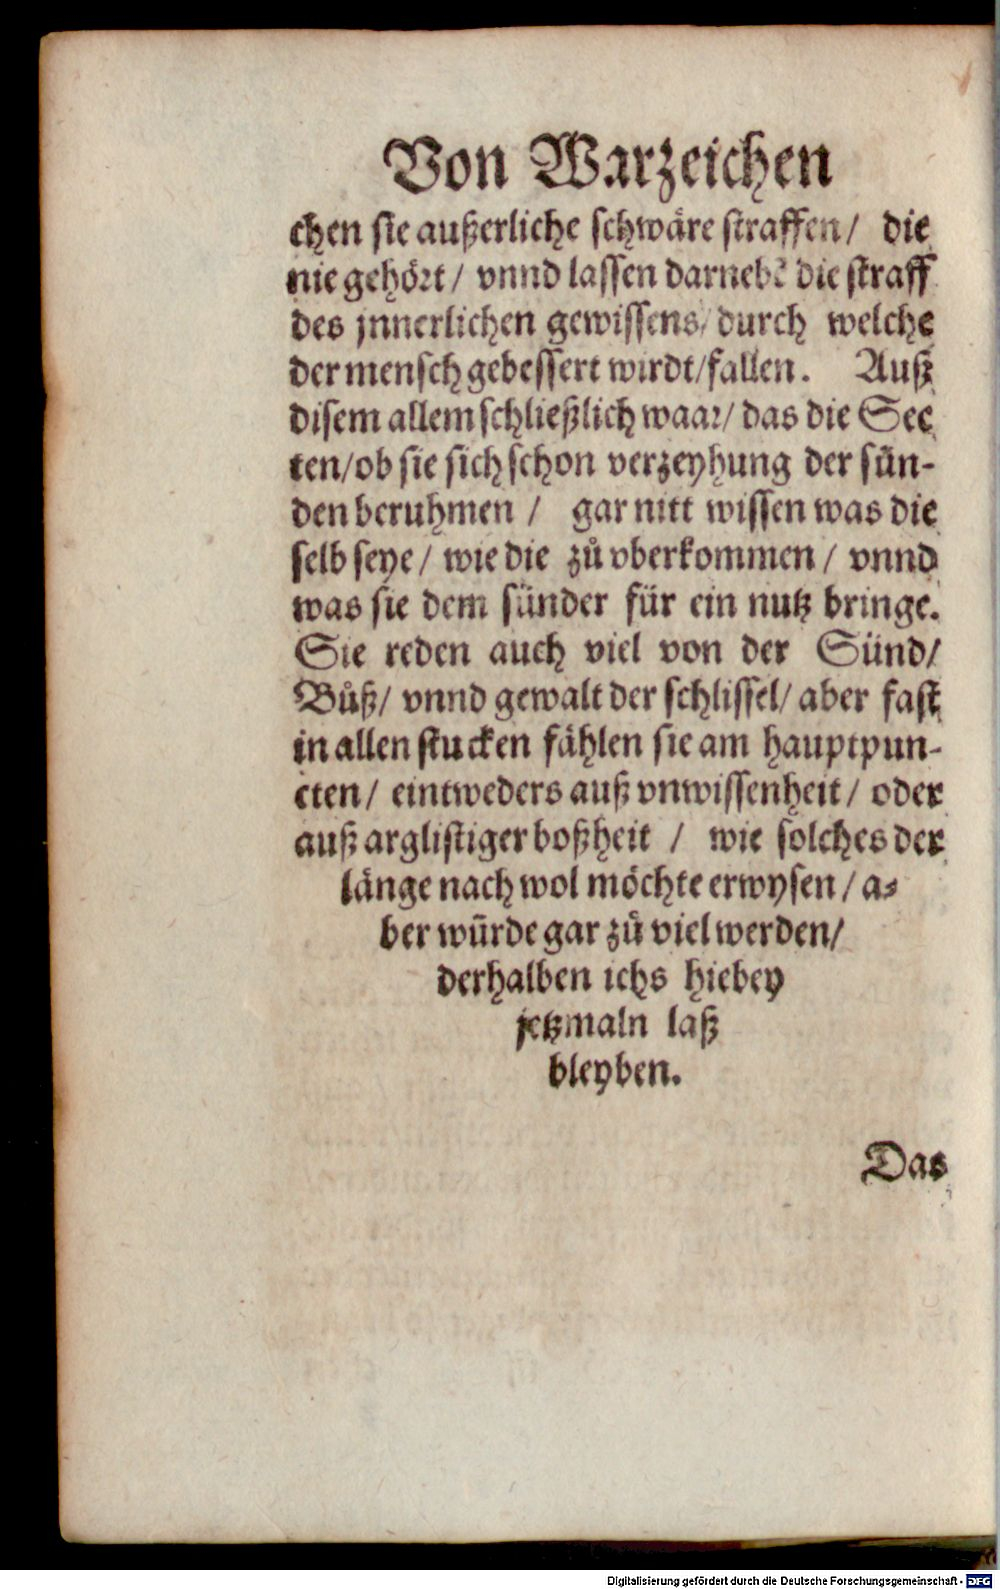 Von Warzeichen
chen sie außerliche schwäre straffen/ die
nie gehört/ vnnd lassen darnebẽ die straff
des jnnerlichen gewissens/ durch welche
der mensch gebessert wirdt/fallen. Auß
disem allem schließlich waar/ das die Sec
ten/ob sie sich schon verzeyhung der sün-
den beruhmen / gar nitt wissen was die
selb seye/ wie die zů vberkommen/ vnnd
was sie dem sünder für ein nutz bringe.
Sie reden auch viel von der Sünd/
Bůß/ vnnd gewalt der schlissel/ aber fast
in allen stucken fählen sie am hauptpun-
cten/ eintweders auß vnwissenheit/ oder
auß arglistiger boßheit / wie solches der
länge nach wol möchte erwysen/ a-
ber würde gar zů viel werden/
derhalben ichs hiebey
jetzmaln laß
bleyben.
Das
Digitalisierung gefördert durch die Deutsche Forschungsgemeinschaft - DFG